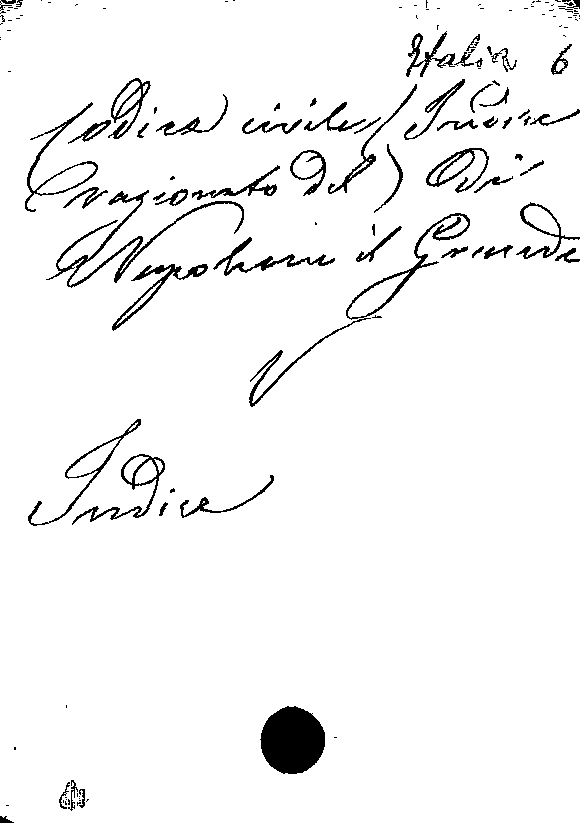 Italia 6
Codice civile (Indice
ragionato del) di
Napoleone il Grande
Indice